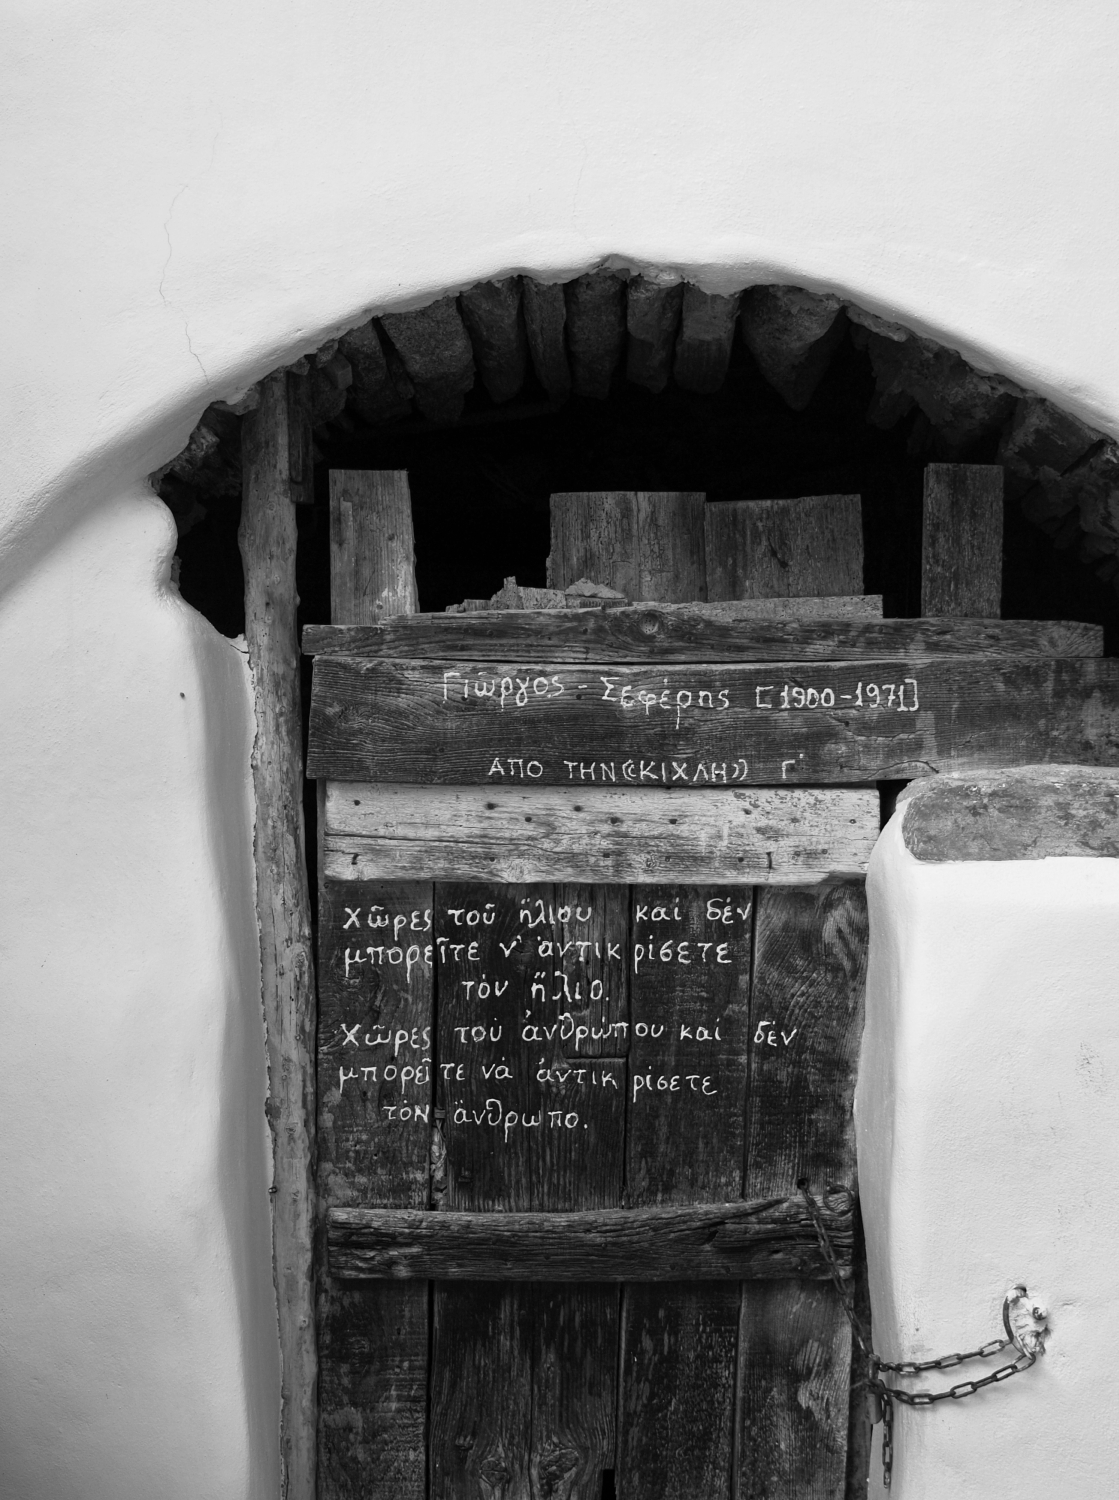 Γιώργος - Σεφέρης [1900-1971]
ΑΠΟ ΤΗΝ «ΚΙΧΛΗ» Γ'
Χῶρες τοῦ ἥλιου καί δέν
μπορεῖτε ν' ἀντικρίσετε
τόν ἥλιο.
Χῶρες τοῦ ἀνθρώπου καί δέν
μπορεῖτε νὰ ἀντικρίσετε
τόν ἄνθρωπο.